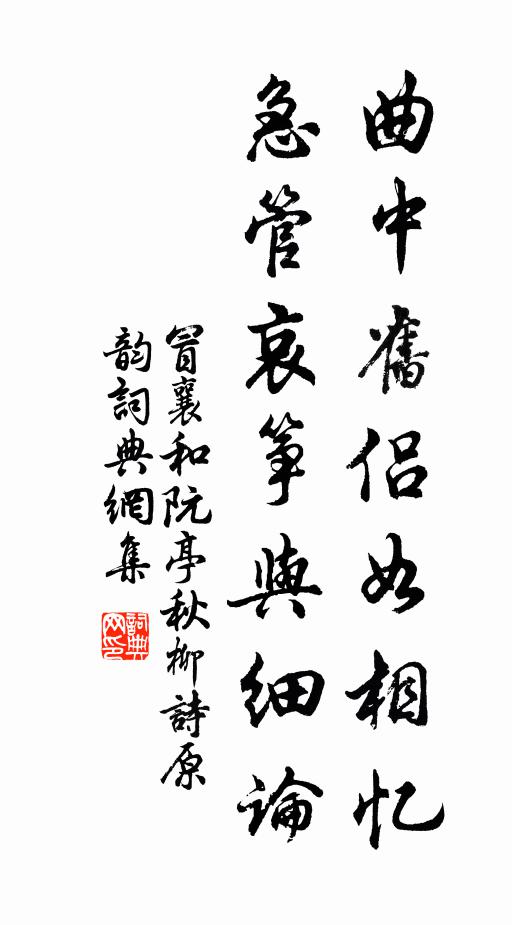 曲中舊侶如相忆
急管哀箏與细論
冒襄和阮亭秋柳詩原
韵詞典網集
詞典网印